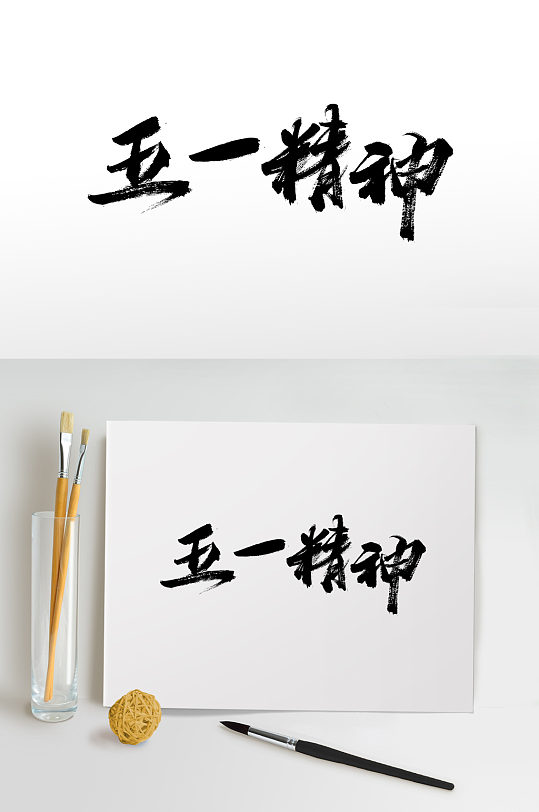 五一精神
五一精神